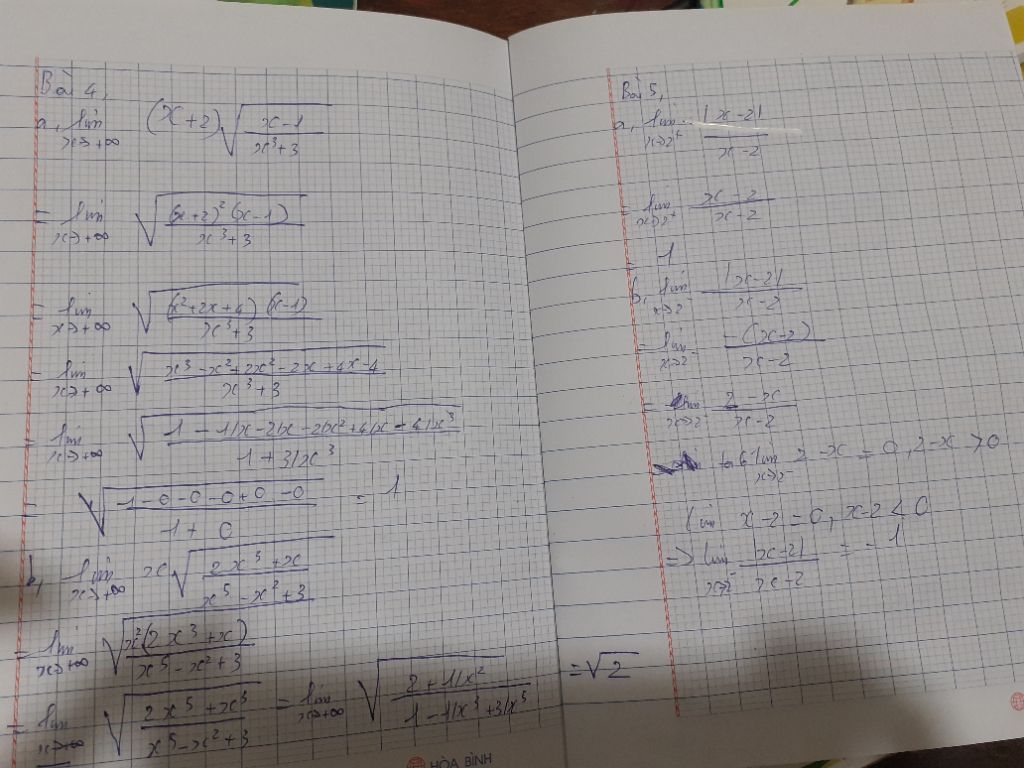 Bài 4,
a, lim x→+∞ (x+2)√((x-1)/(x³+3))
= lim x→+∞ √(((x+2)²(x-1))/(x³+3))
= lim x→+∞ √(((x²+2x+4)(x-1))/(x³+3))
= lim x→+∞ √((x³-x²+2x²-2x+4x-4)/(x³+3))
= lim x→+∞ √((1-1/x-2/x-2/x²+4/x-4/x³)/(1+3/x³))
= √((1-0-0-0+0-0)/(1+0)) = 1
b, lim x→+∞ x√((2x³+x)/(x⁵-x²+3))
= lim x→+∞ √((x²(2x³+x))/(x⁵-x²+3))
= lim x→+∞ √((2x⁵+x³)/(x⁵-x²+3)) = lim x→+∞ √((2+1/x²)/(1-1/x³+3/x⁵)) = √2
HÒA BÌNH
Bài 5,
a, lim x→2⁺ |x-2|/(x-2)
= lim x→2⁺ (x-2)/(x-2)
= 1
b, lim x→2⁻ |x-2|/(x-2)
= lim x→2⁻ -(x-2)/(x-2)
= lim x→2⁻ (2-x)/(x-2)
ta có lim x→2⁻ 2-x = 0, 2-x > 0
lim x-2 = 0, x-2 < 0
=> lim x→2⁻ |x-2|/(x-2) = -1